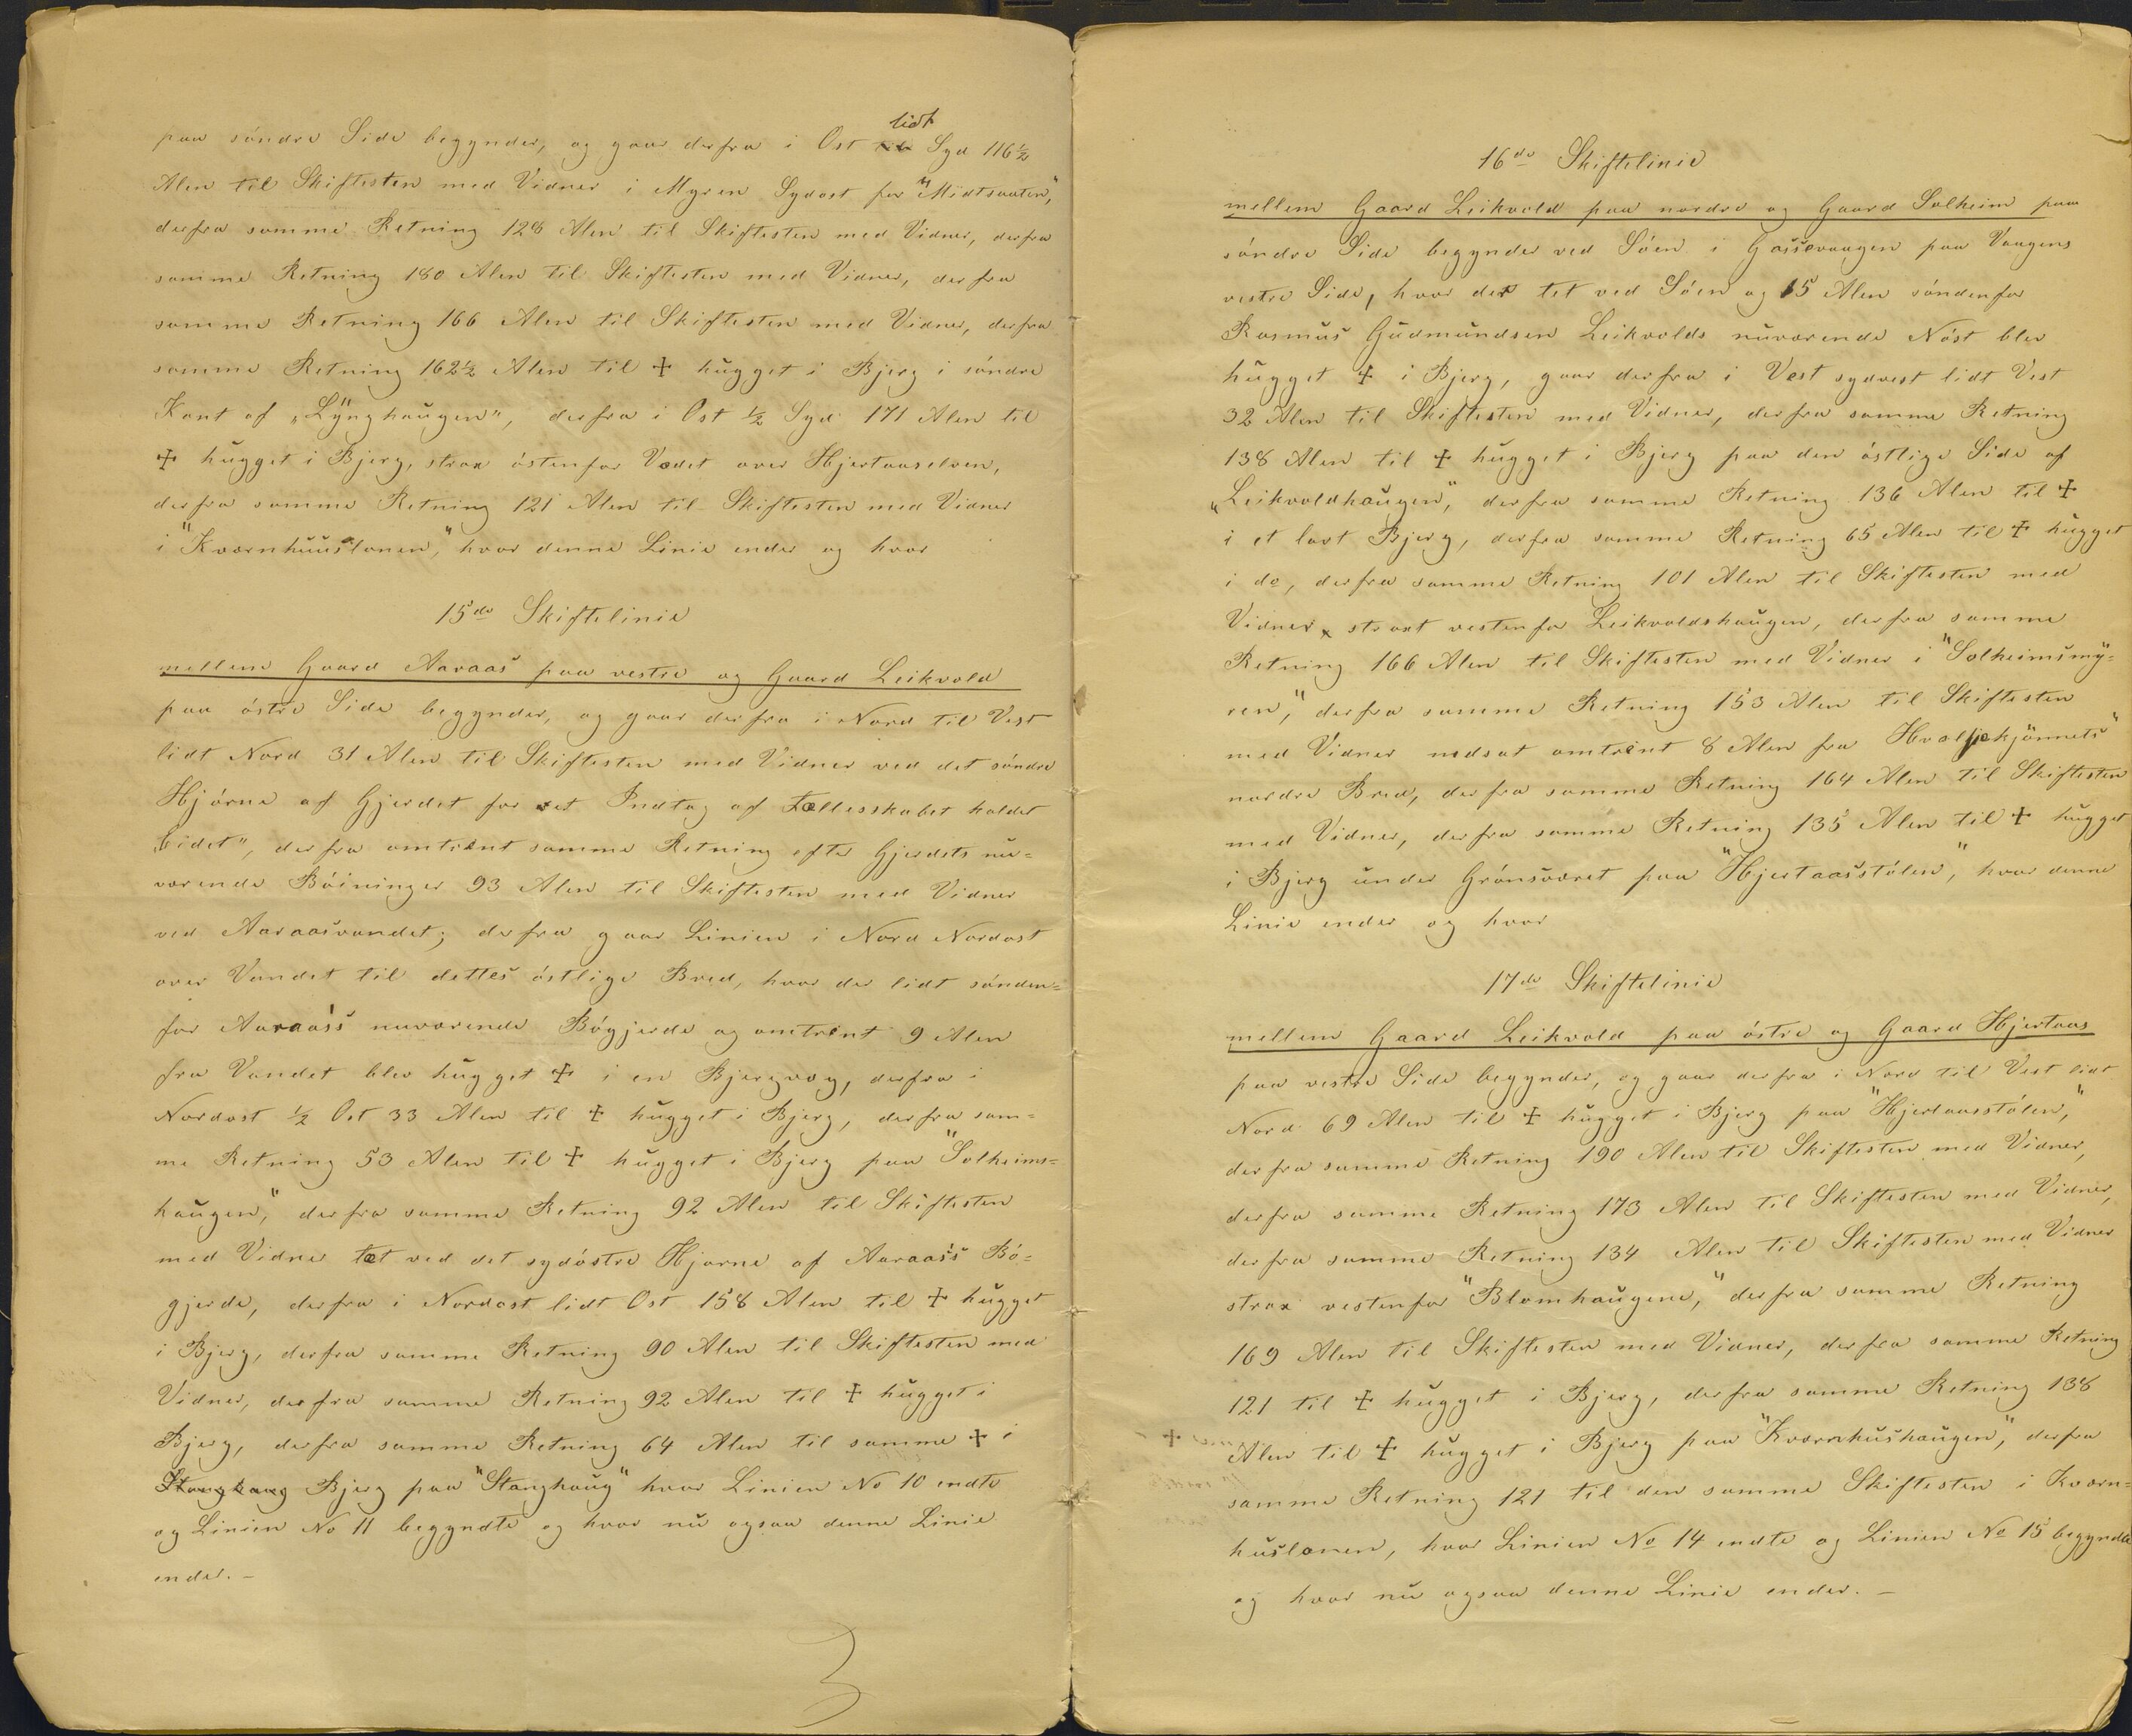 paa söndre Side begynder, og gaar derfra i Ost lidt Syd 116½
Alen til Skiftesten med Vidner i Myren Sydost for "Midtsaaten",
derfra samme Retning 128 Alen til Skiftesten med Vidner, derfra
samme Retning 180 Alen til Skiftesten med Vidner, derfra
samme Retning 166 Alen til Skiftesten med Vidner, derfra
samme Retning 162½ Alen til ✢ hugget i Bjerg i söndre
Kant af „Lÿnghaugen“, derfra i Ost ½ Syd 171 Alen til
✢ hugget i Bjerg, strax östenfor Vadet over Hjertaaselven,
derfra samme Retning 121 Alen til Skiftesten med Vidner
i "Kvarnhuuslonen", hvor denne Linie ender og hvor
15de Skiftelinie
mellem Gaard Aaraas paa vestre og Gaard Leikvold
paa östre Side begynder, og gaar derfra i Nord til Vest
lidt Nord 31 Alen til Skiftesten med Vidner ved det söndre
Hjörne af Gjerdet for et Indtag af Fællesskabet kaldet
Eidet", derfra omtrent samme Retning efter Gjerdets nu=
værende Böininger 93 Alen til Skiftesten med Vidner
ved Aaraasvandet; derfra gaar Linien i Nord Nordost
over Vandet til dettes östlige Bred, hvor der lidt sönden=
for Aaraas's nuværende Bögjerde og omtrent 9 Alen
fra Vandet blev hugget ✢ i en Bjergvæg, derfra i
Nordost ½ Ost 33 Alen til ✢ hugget i Bjerg, derfra sam=
me Retning 53 Alen til ✢ hugget i Bjerg paa "Solheims=
haugen", derfra samme Retning 92 Alen til Skiftesten
med Vidne tæt ved det sydöstre Hjörne af Aaraas's Bö=
gjerde, derfra i Nordost lidt Ost 158 Alen til ✢ hugget
i Bjerg, derfra samme Retning 90 Alen til Skiftesten med
Vidner, derfra samme Retning 92 Alen til ✢ hugget i
Bjerg, derfra samme Retning 64 Alen til samme ✢ i
Stanghaug Bjerg paa "Stanghaug" hvor Linien No 10 endte
og Linien No 11 begyndte og hvor nu ogsaa denne Linie
ender. –
16de Skiftelinie
mellem Gaard Leikvold paa nordre og Gaard Solheim paa
söndre Side begynder ved Söen i Gassevaagen paa Vaagens
vestre Side, hvor der tet ved Söen og 15 Alen söndenfor
Rasmus Gudmundsen Leikvolds nuværende Nöst blev
hugget ✢ i Bjerg, gaar derfra i Vest sydvest lidt Vest
32 Alen til Skiftesten med Vidner, derfra samme Retning
138 Alen til ✢ hugget i Bjerg paa den östlige Side af
"Leikvoldhaugen", derfra samme Retning 136 Alen til ✢
i et lavt Bjerg, derfra samme Retning 65 Alen til ✢ hugget
i do, derfra samme Retning 101 Alen til Skiftesten med
Vidner straxt vestenfor Leikvoldshaugen, derfra samme
Retning 166 Alen til Skiftesten med Vidner i "Solheimsmÿ=
ren", derfra samme Retning 153 Alen til Skiftesten
med Vidner nedsat omtrent 8 Alen fra Hvalpekjönnets"
nordre Bred, derfra samme Retning 164 Alen til Skiftesten
med Vidner, derfra samme Retning 135 Alen til ✢ hugget
i Bjerg under Grönsværet paa "Hjertaasstölen", hvor denne
Linie ender og hvor
17de Skiftelinie
mellem Gaard Leikvold paa östre og Gaard Hjertaas
paa vestre Side begynder, og gaar derfra i Nord til Vest lidt
Nord 69 Alen til ✢ hugget i Bjerg paa "Hjertaasstölen",
derfra samme Retning 190 Alen til Skiftesten med Vidner,
derfra samme Retning 173 Alen til Skiftesten med Vidner,
derfra samme Retning 134 Alen til Skiftesten med Vidner
strax vestenfor "Blomhaugene", derfra samme Retning
169 Alen til Skiftesten med Vidner, derfra samme Retning
121 til ✢ hugget i Bjerg, derfra samme Retning 138
Alen til ✢ hugget i Bjerg paa "Kvarnhushaugen", derfra
samme Retning 121 til den samme Skiftesten i Kvarn=
huslonen, hvor Linien No 14 endte og Linien No 15 begyndte
og hvor nu ogsaa denne Linie ender. –